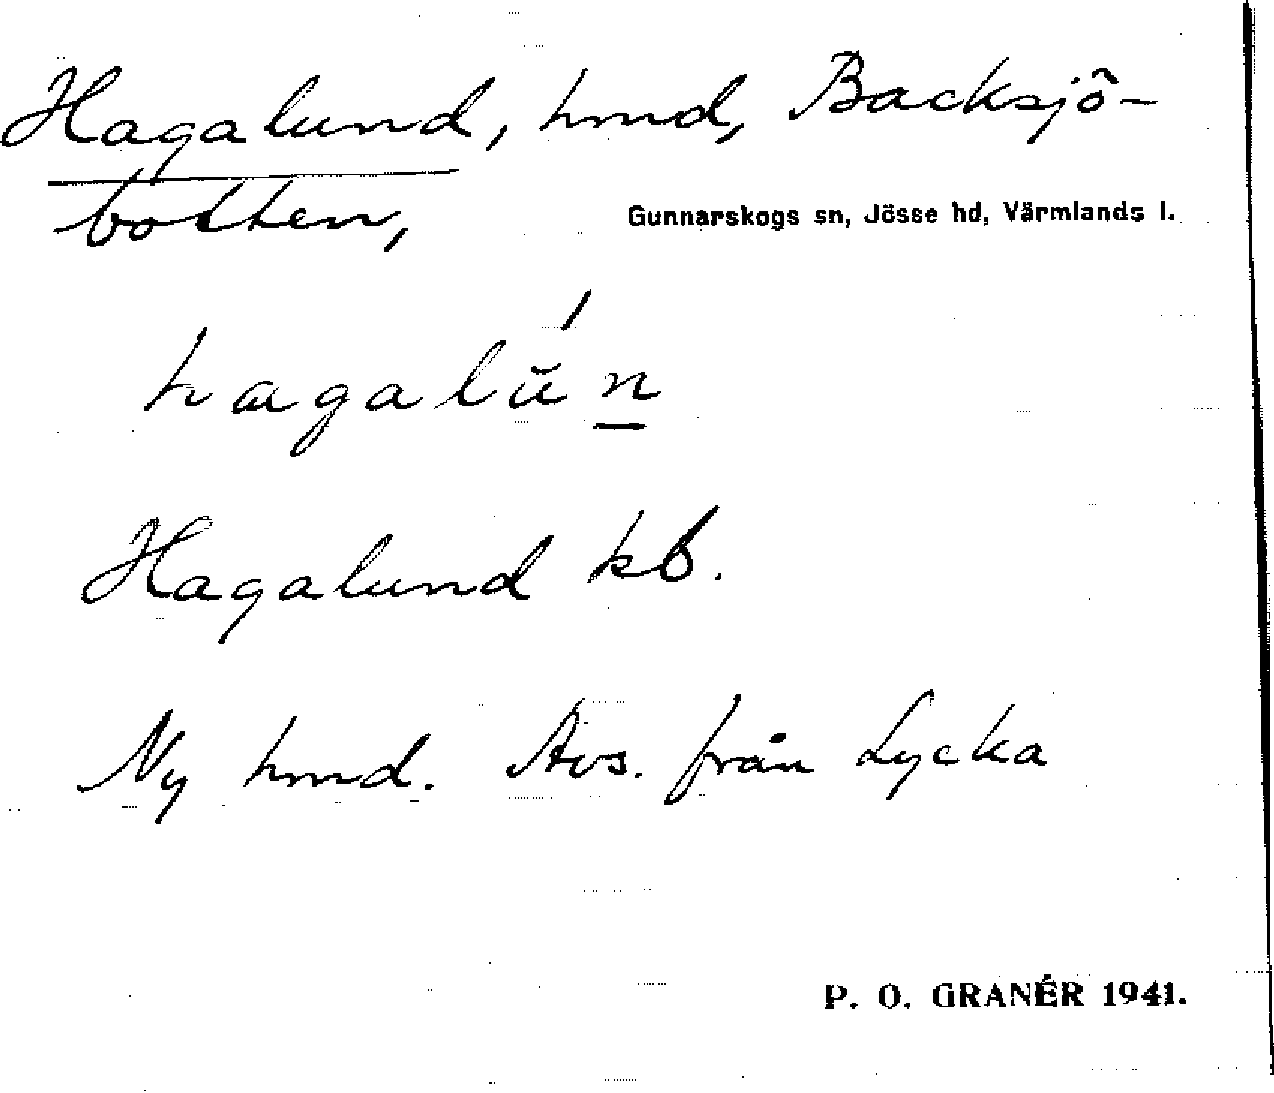 Hagalund, hmd, Backsjö-
botten,
Gunnarskogs sn, Jösse hd, Värmlands l.
hagalŭ́n
Hagalund kb.
Ny hmd. Avs. från Lycka
P. O. GRANÉR 1941.